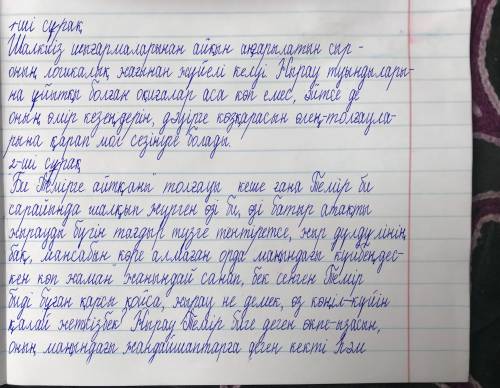 1-ші сұрақ
Шалкиіз шығармаларынан айқын аңғарылатын сыр -
оның логикалық жағынан жүйелі келуі Жырау туындылары-
на ұйытқы болған оқиғалар аса көп емес, әйтсе де
оның өмір кезеңдерін, дәуірге көзқарасын өлең-толғаула-
рына қарап мол сезінуге болады.
2-ші сұрақ
"Би Темірге айтқаны" толғауы кеше ғана Темір би
сарайында шалқып жүрген әрі би, әрі батыр атақты
жырауды бүгін тағдыр түзге тентіретсе, жыр дүлдүлінің
бақ, мансабын көре алмаған орда маңындағы күйбеңдес-
кен көп жаман жанындай санап, бек сенген Темір
биді бұған қарсы қойса, жырау не демек, өз көңіл-күйін
қалай жеткізбек Жырау Темір биге деген өкпе-ызасын,
оның маңындағы жандайшаптарға деген кекті һәм